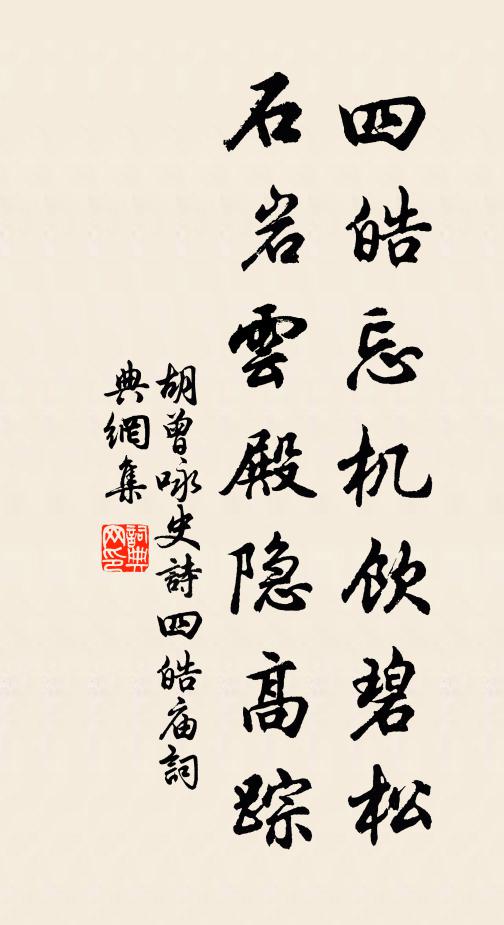 四皓忘机饮碧松
石岩雲殿隐高踪
胡曾咏史詩四皓庙詞
典網集
詞典
网印